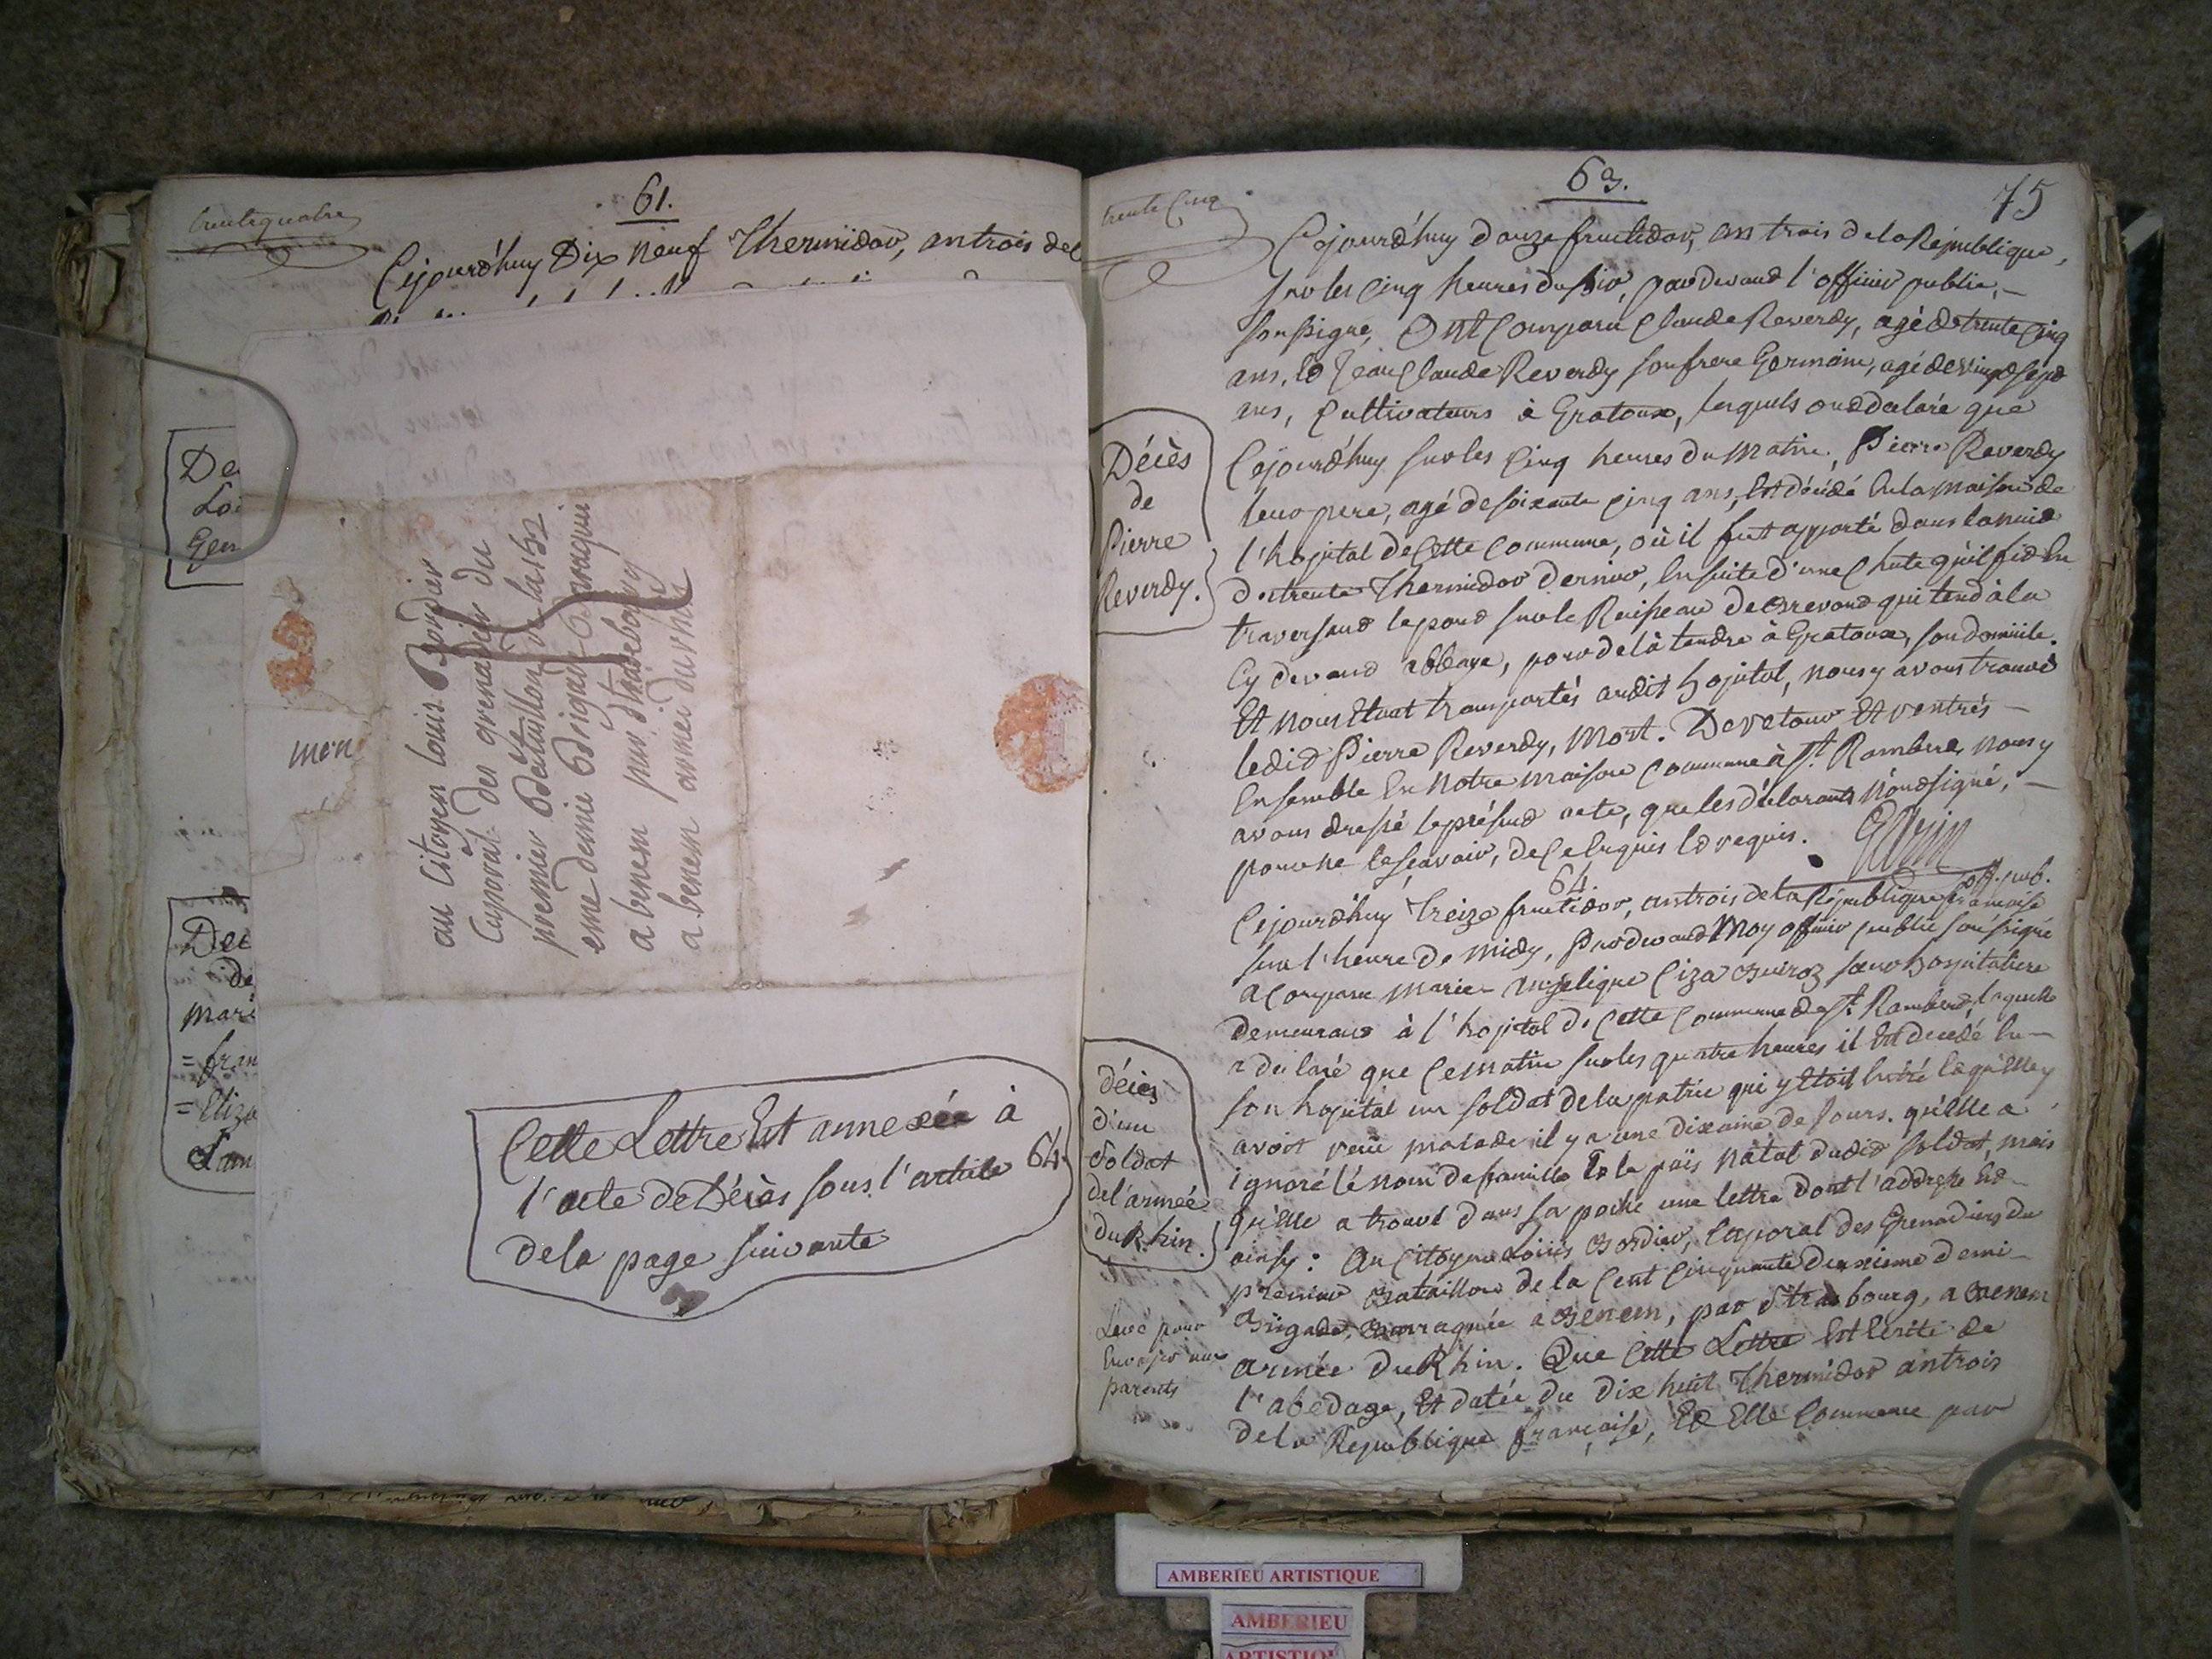 trente quatre
61.
Cejourd'huy Dix neuf Thermidor, an trois de
De
Loi
Gen
au Citoyen louis Bordier
Caporal des grenadier du
premier Batallion de la 152
eme demie Brigade Baraquie
a benem par strasbourg
a benem armée du rhin
men
Dec
de
Mari
=fran
=Eliza
Cette Lettre Est annexée à
l'acte de Décès sous l'article 64.
de la page suivante
trente Cinq
63.
75
Cejourd'huy douze fructidor, an trois de la République,
sur les Cinq heures du soir, pardevand l'officier public,
soussigné, Ont Comparu Claude Reverdy, agé de trente Cinq
ans, Ed Jean Claude Reverdy son frere Germain, agé de vingd sept
ans, Cultivateurs à Gratoux, lesquels ond declaré que
Cejourd'huy sur les Cinq heures du Matin, Pierre Reverdy
leur pere, agé de soixante Cinq ans, Est décédé En la maison de
l'hopital de Cette Commune, où il fut apporté dans la nuid
du trente Thermidor dernier, Ensuite d'une Chute qu'il fid En
traversand le pond sur le Ruisseau de Brevond qui tend à la
Cy devand abbaye, pour de là tendre à Gratoux, son domicile.
Et nous Etant transportés audit hopital, nous y avons trouvé
ledid Pierre Reverdy, Mort. De retour Et rentrés
Ensemble En Notre maison Commune à St. Rambert, nous y
avons dressé le présend acte, que les déclarants n'ond signé,
pour ne le sçavoir, de Ce Enquis Ed requis.
off. pub.
64.
Cejourd'huy Treize fructidor, an trois de la République française
sur l'heure de midy, Pardevand Moy officier public soussigné
a Comparu Marie Angélique Ciza Buiroz sœur hospitaliere
demeurant à l'hopital de Cette Commune de St. Rambert, laquelle
a declaré que Ce matin sur les quatre heures il Est decedé En
son hopital un soldat de la patrie qui y Etoit Entré Et qu'Elle y
avoit reçu malade il y a une dixaine de Jours. qu'Elle a
ignoré le nom de famille Et le païs natal dudid soldat, mais
qu'Elle a trouvé dans sa poche une lettre dont l'addresse Est
ainsy: Au Citoyen Louis Bordier, Caporal des Grenadiers du
premier Bataillon de la Cent Cinquante Deuxieme demi
Brigade, Barraquée a Benem, par Strasbourg, a Benem
armée du Rhin. Que Cette Lettre Est Ecrite de
l'abedage, Et datée du dix huit Thermidor an trois
de la République française, Ed Elle Commence par
Décès
de
Pierre
Reverdy.
décès
d'un
Soldat
de l'armée
du Rhin.
Levé pour
Envoyer aux
parents
AMBERIEU ARTISTIQUE
AMBERIEU
ARTISTIQUE